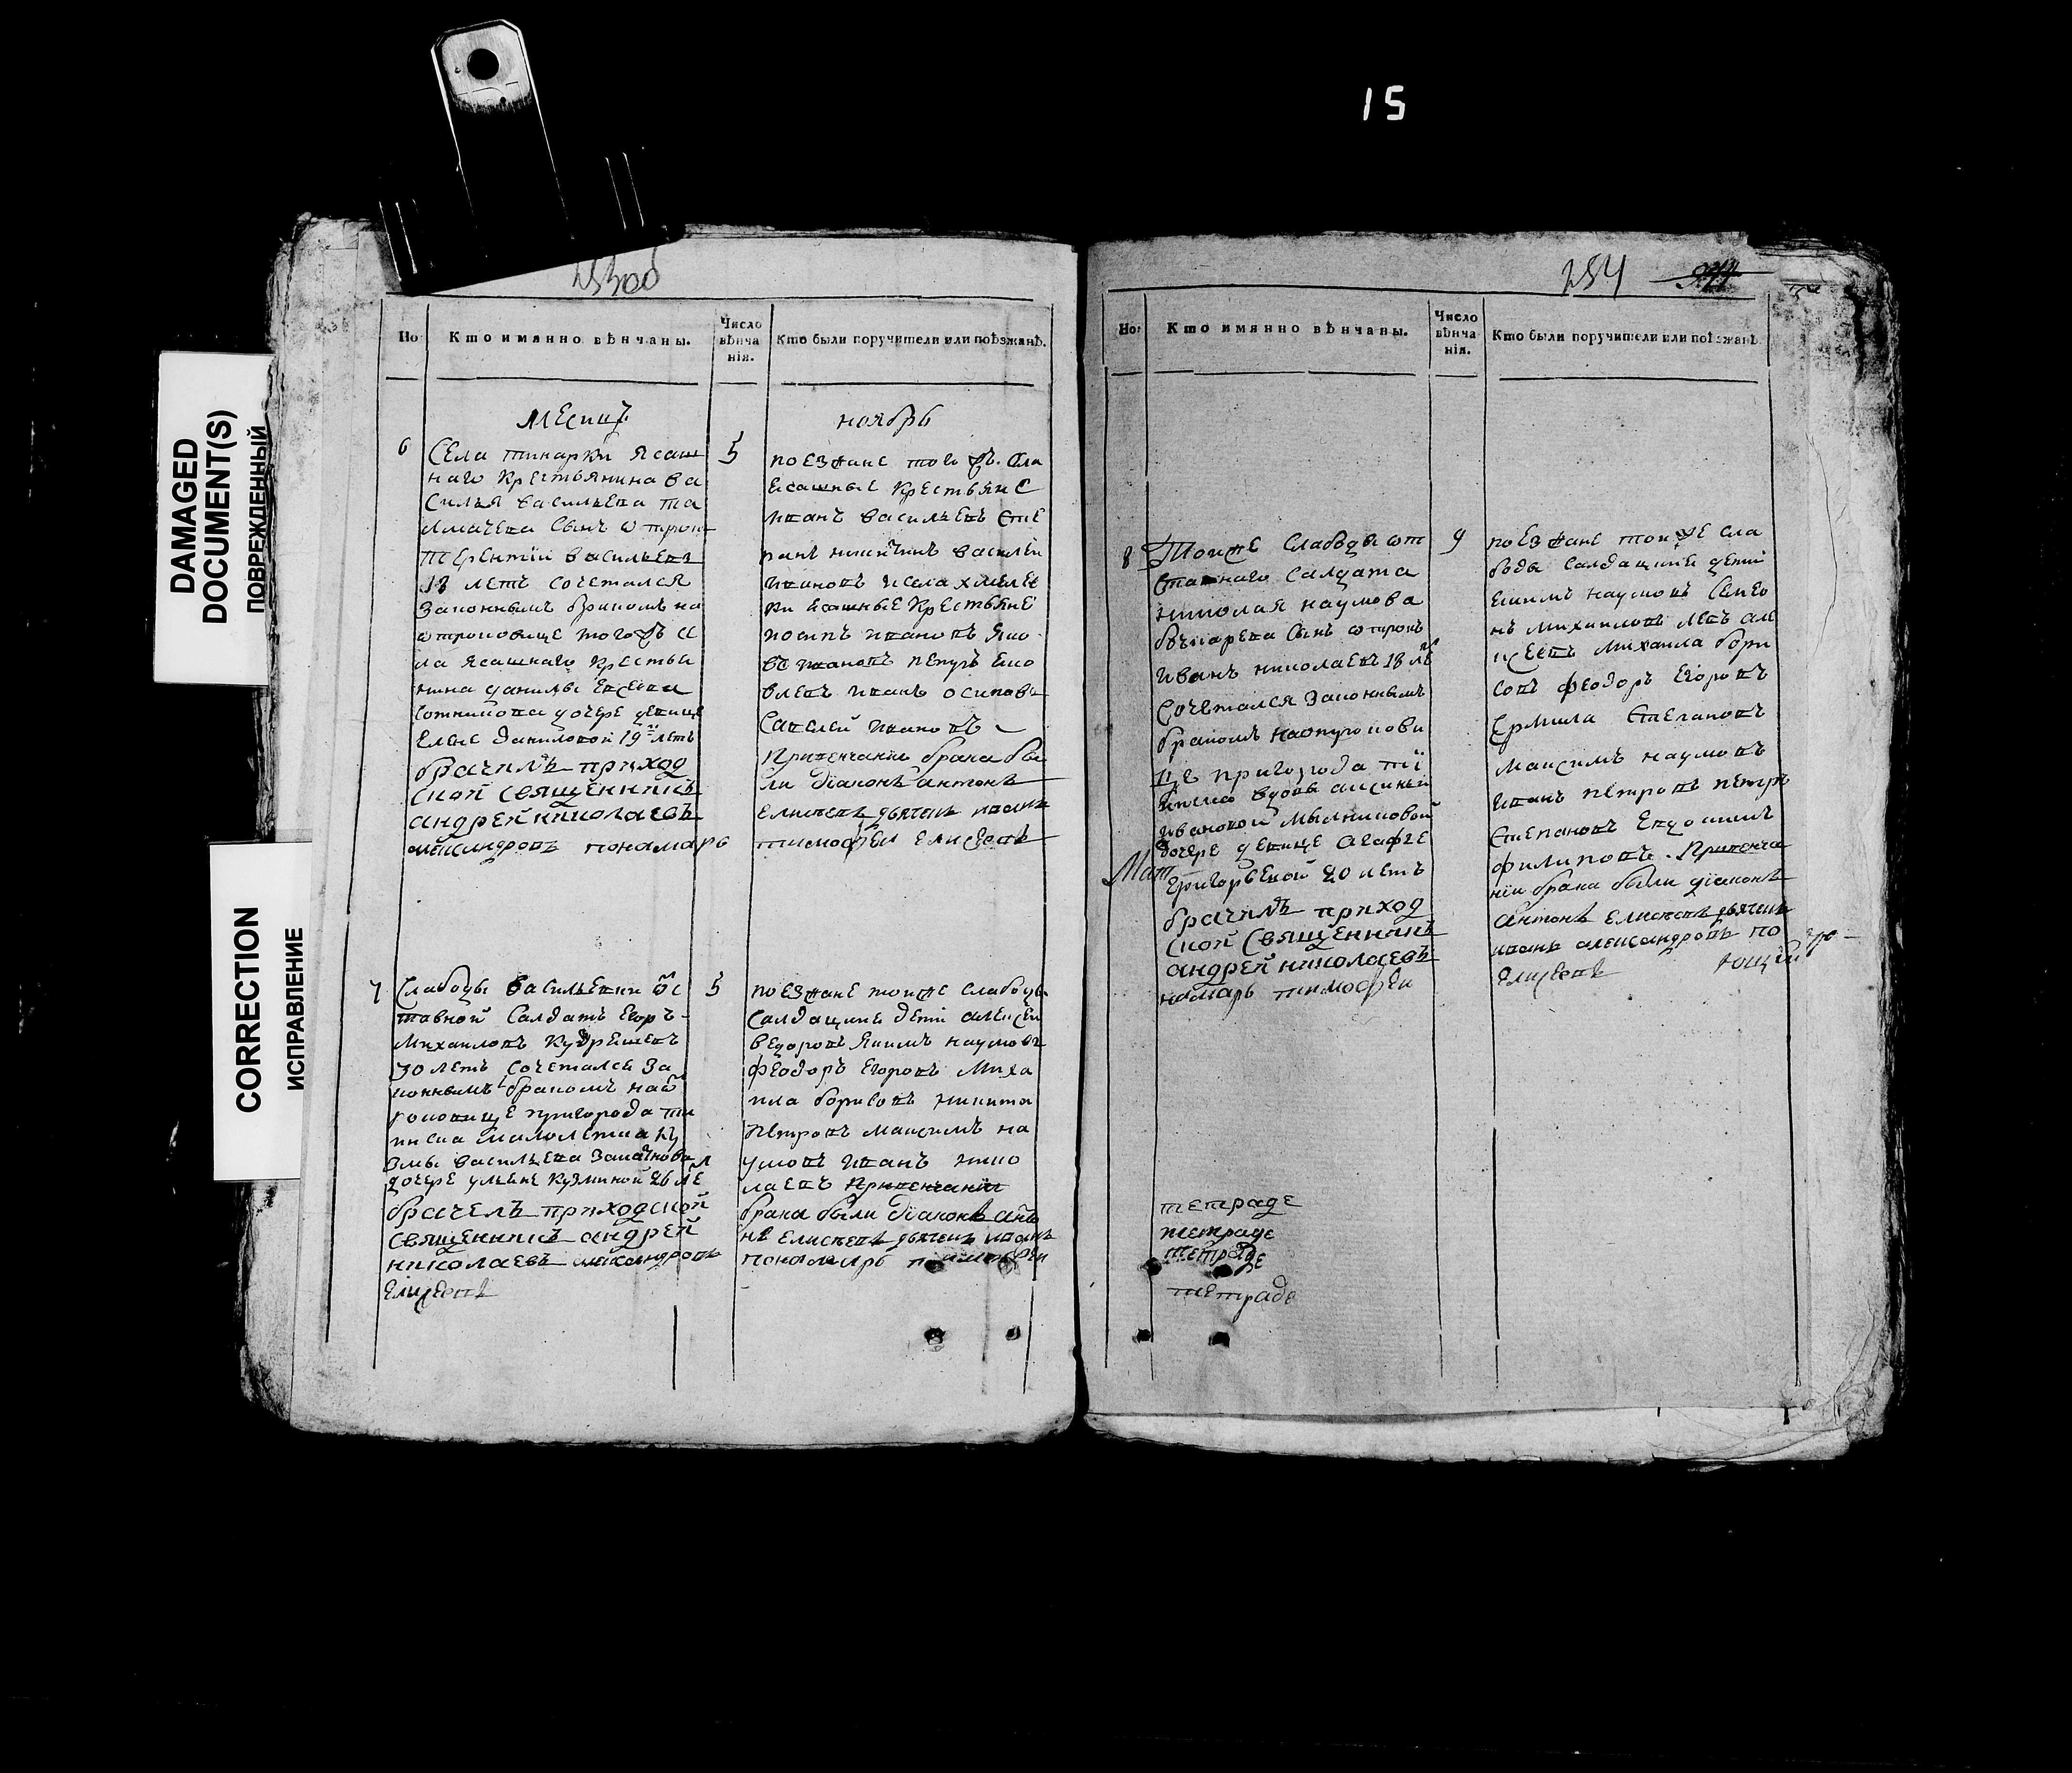 15
DAMAGED
DOCUMENT(S)
ПОВРЕЖДЕННЫЙ
CORRECTION
ИСПРАВЛЕНИЕ
253об
Но
Кто имянно вѣнчаны.
Число
вѣнча
нія.
Кто были поручители или поѣзжанѣ.
месицъ
ноябрь
6
Села тинарки ясаш
наго крестьянина ва
силья васильева та
лмачева сынъ отрок
терентiи васильевъ
18 летъ сочетался
законнымъ бракомъ на
отроковице того жъ се
ла ясашнаго крестья
нина данилы
сотникова дочере девице
елене даниловой 19 летъ
брачилъ приход
ской священникъ
андрей николаевъ
александровъ понамарь
5
поезжане того жъ села
ясашные крестьяне
иванъ васильевъ сте
панъ никитинъ василеи
ивановъ и села хмелев
ки ясашные крестьяне
иванъ осиповъ
савелей ивановъ
При венчании брака бы
ли дiаконъ антонъ
елисеевъ дьячекъ иванъ
тимофеи елисеевъ
7
Слабоды васильевки ѿс
тавной салдатъ егоръ
михаиловъ кудрешевъ
30 летъ сочетался за
коннымъ бракомъ на ѿ
роковице пригорода ти
инска малолетка ку
змы васильева
дочере ульяне кузминой 26 ле
брачелъ приходской
священникъ андрей
николаевъ александровъ
елисеевъ
5
поезжане тоиже слабоды
салдацкие дети алексеи
ведоровъ якимъ наумовъ
феодоръ егоровъ миха
ила борисовъ никита
петровъ максимъ на
умовъ иванъ нико
лаевъ При венчании
брака были дiаконъ анто
нъ елисеевъ дьячекъ иванъ
понамарь тимофеи
254
Но:
Кто имянно вѣнчаны.
Число
вѣнча
нія.
Кто были поручители или поѣзжанѣ.
8
Тоиже слабоды от
ставнаго салдата
николая наумова
сынъ отрокъ
иванъ николаевъ 18 ле
сочетался законнымъ
бракомъ на отрокови
це пригорода тiи
инска вдовы аксиньи
ивановой мылниковой
дочере девице агафье
григорьевой 20 летъ
брачилъ приход
ской священникъ
андрей николаевъ
намарь тимофеи
9
поезжане тои же сла
боды салдацкие дети
екимъ наумовъ семео
нъ михаиловъ левъ але
ксеевъ михаила бори
совъ феодоръ егоровъ
ермила степановъ
максимъ наумовъ
иванъ петровъ петръ
степановъ евдокимъ
филиповъ. При венча
нiи брака были дiаконъ
антонъ елисеевъ дьячекъ
иванъ александровъ по
елисеевъ
Мат
тетраде
тетраде
тетраде
тетраде